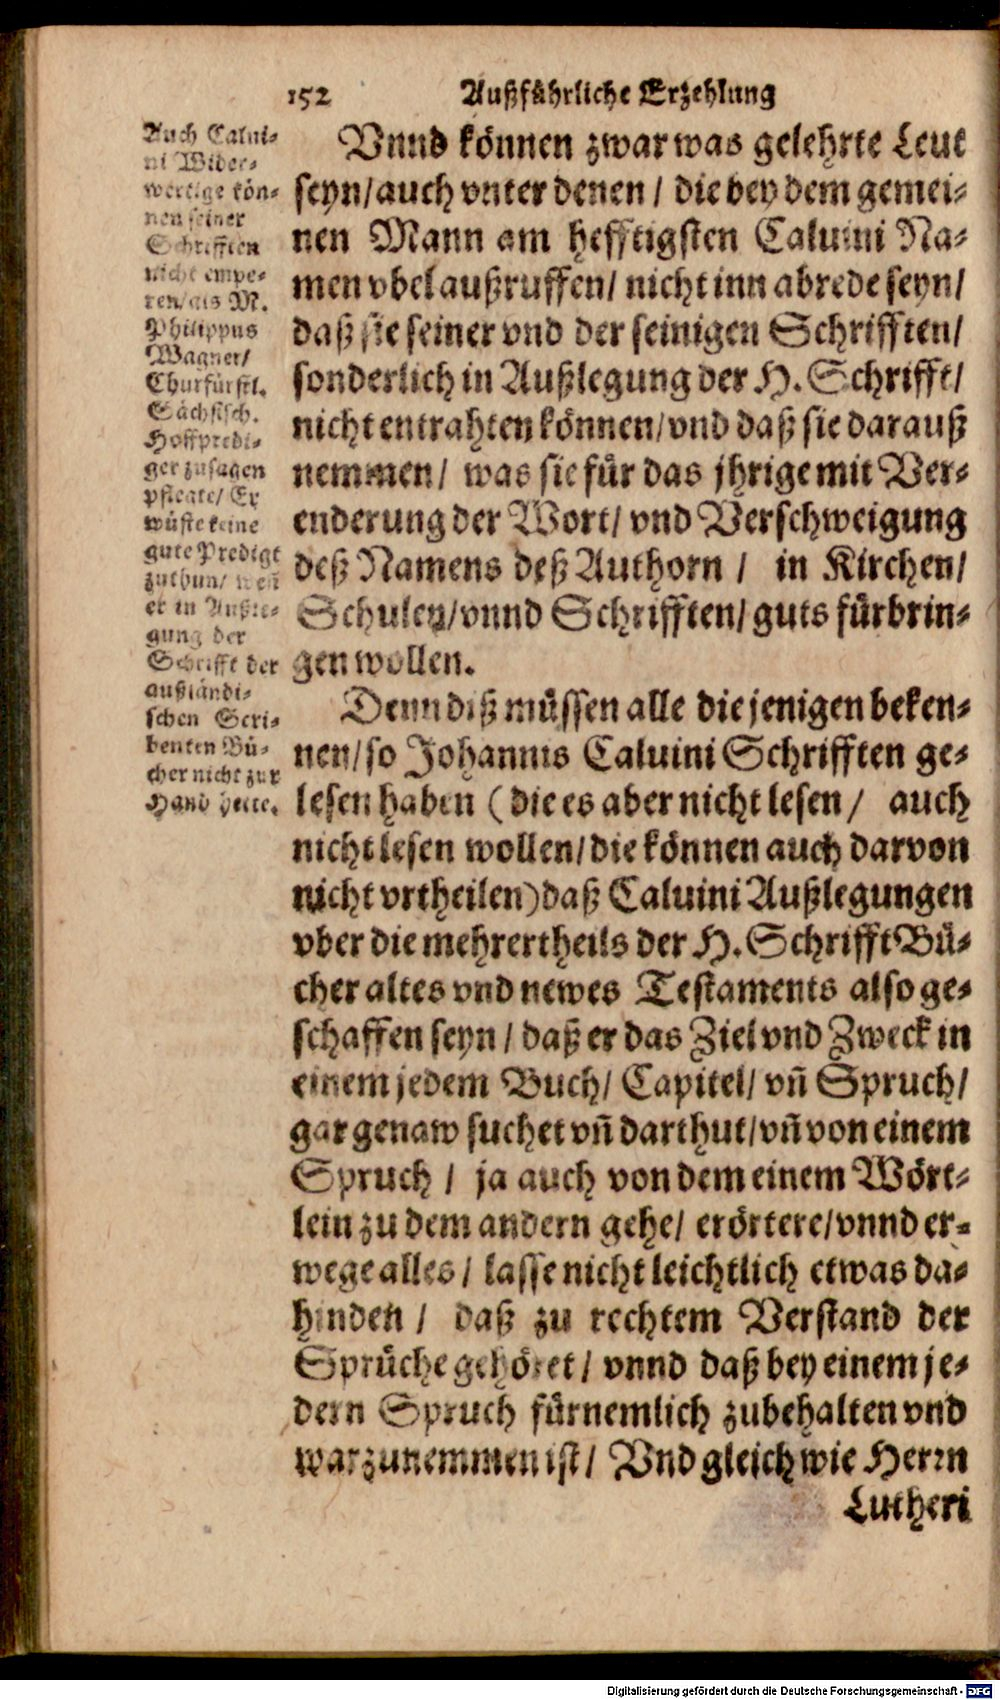 152 Außfůhrliche Erzehlung
Auch Calui-
ni Wider-
wertige kön-
nen seiner
Schrifften
nicht empe-
ren/als M.
Philippus
Wagner/
Churfürstl.
Sächsisch.
Hoffpredi-
ger zusagen
pflegte/ Er
wüste keine
gute Predigt
zuthun/ weñ
er in Außle-
gung der
Schrifft der
außländi-
schen Scri-
benten Bü-
cher nicht zur
Hand hette.
Vnnd können zwar was gelehrte Leut
seyn/auch vnter denen / die bey dem gemei-
nen Mann am hefftigsten Caluini Na-
men vbel außruffen/ nicht inn abrede seyn/
daß sie seiner vnd der seinigen Schrifften/
sonderlich in Außlegung der H. Schrifft/
nicht entrahten können/vnd daß sie darauß
nemmen/ was sie für das jhrige mit Ver-
enderung der Wort/ vnd Verschweigung
deß Namens deß Authorn / in Kirchen/
Schulen/vnnd Schrifften/ guts fürbrin-
gen wollen.
Denn diß müssen alle die jenigen beken-
nen/so Johannis Caluini Schrifften ge-
lesen haben (die es aber nicht lesen / auch
nicht lesen wollen/die können auch darvon
nicht vrtheilen)daß Caluini Außlegungen
vber die mehrertheils der H. Schrifft Bü-
cher altes vnd newes Testaments also ge-
schaffen seyn / daß er das Ziel vnd Zweck in
einem jedem Buch/ Capitel/ vñ Spruch/
gar genaw suchet vñ darthut/vñ von einem
Spruch / ja auch von dem einem Wört-
lein zu dem andern gehe/ erörtere/vnnd er-
wege alles / lasse nicht leichtlich etwas da-
hinden / daß zu rechtem Verstand der
Sprüche gehöret / vnnd daß bey einem je-
dern Spruch fürnemlich zubehalten vnd
warzunemmen ist / Vnd gleich wie Herrn
Lutheri
Digitalisierung gefördert durch die Deutsche Forschungsgemeinschaft - DFG